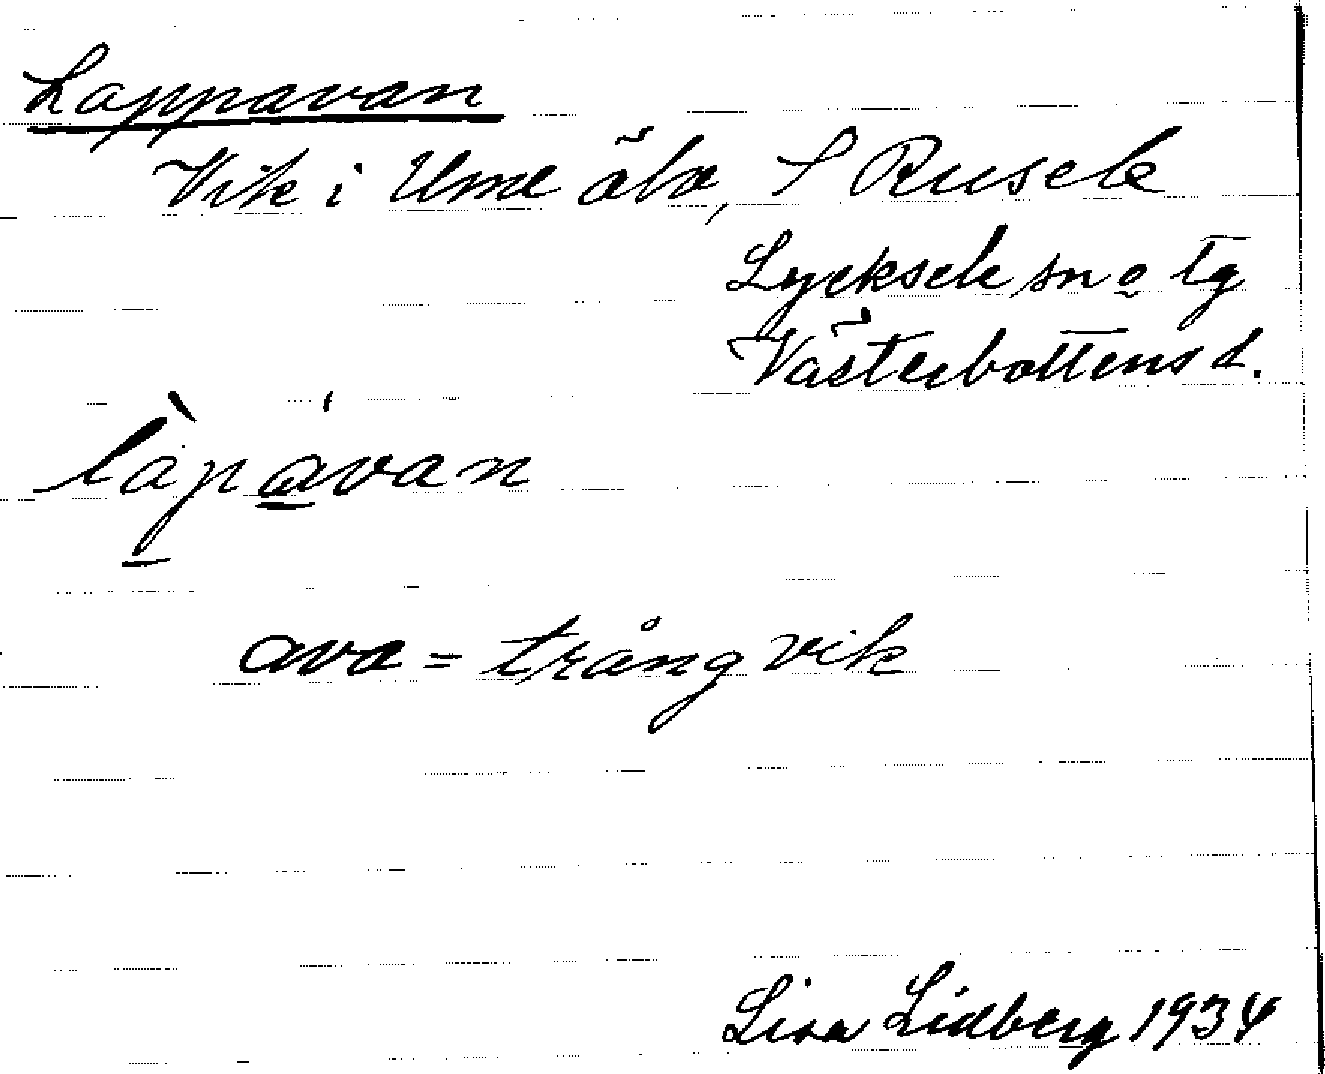 Lappavan
Vik i Ume älv, S Rusele
Lycksele sn o tg
Västerbottens l.
l̀apa̍van
ava = trång vik
Lisa Lidberg 1934